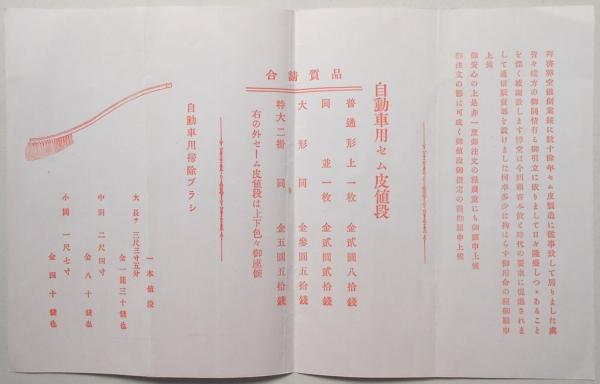 拝啓弊堂儀創業以来既に数十餘年セム皮製造に従事致して居りました處
皆々様方の御同情有る御引立に依りまして日々隆盛しつゝあること
を深く感謝致します弊堂は今回顧客本位と時代の要求に促進されま
して通信販賣部を設けました何卒多少に拘はらず御用命の程御願申
上候
御安心の上是非一度御注文の程幾重にも御願申上候
御注文の節は可成く御値段御指定の程御願申上候
自動車用セム皮値段
品質請合
普通形上一枚 金貳圓八拾錢
同 並一枚 金貳圓貳拾錢
大形同 金參圓五拾錢
特大二掛同 金五圓五拾錢
右の外セーム皮値段は上下色々御座候
自動車用掃除ブラシ
一本値段
大 長サ 三尺三寸五分
金一圓三十錢也
中同 二尺四寸
金八十錢也
小同 一尺七寸
金四十錢也